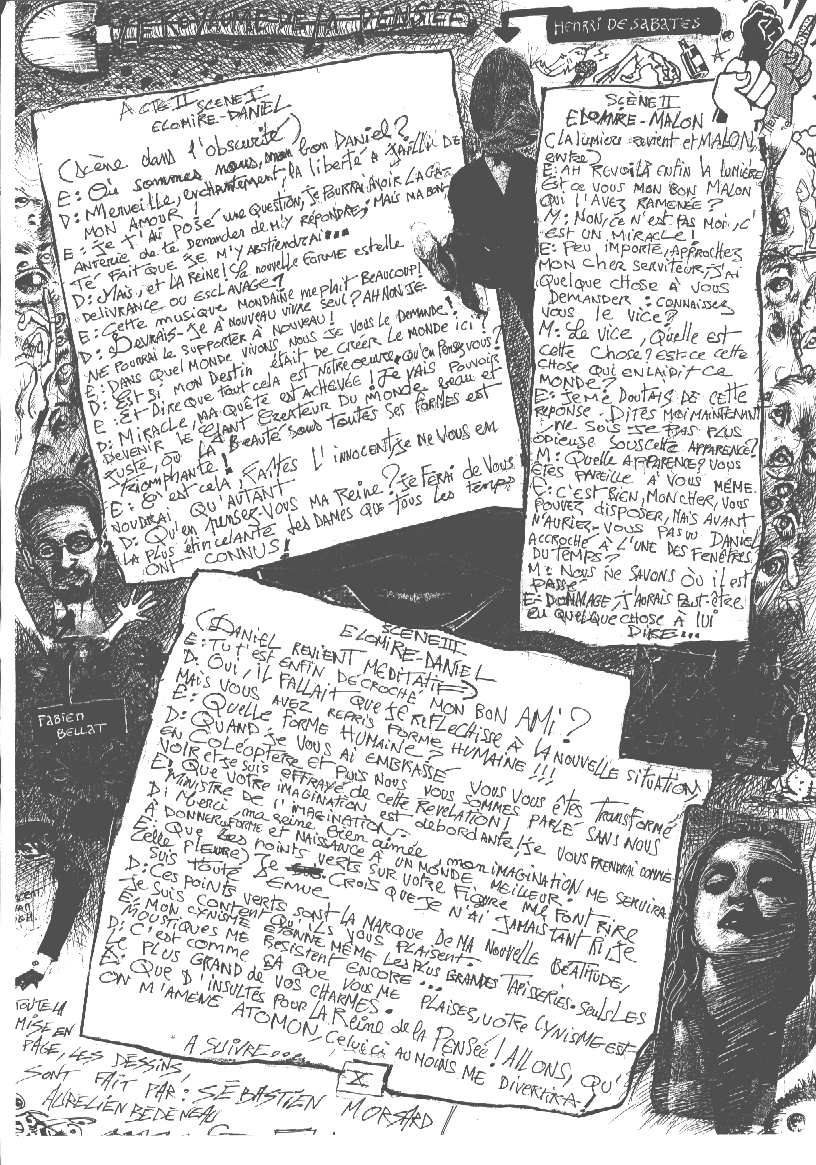 LE ROYAUME DE LA PENSÉE
HENRRI DE SABATES
ACTE II SCENE I
ELOMIRE-DANIEL
(Scène dans l'obscurité)
E: Où sommes nous, mon bon Daniel?
D: Merveille, enchantement, la liberté a jailli de
MON AMOUR!
E: Je t'ai posé une question, je pourrai avoir la ga-
anterie de te demander de m'y répondre; mais ma bon-
té fait que je m'y abstiendrai...
D: Mais, et la Reine! Sa nouvelle forme est elle
délivrance ou esclavage?
E: Cette musique mondaine me plait beaucoup!
D: Devrais-je à nouveau vivre seul? Ah non je
ne pourrai le supporter à nouveau!
E: Dans quel monde vivons nous je vous le demande!
D: Est si mon destin était de créer le monde ici?
E: Et dire que tout cela est notre oeuvre, qu'en pensez vous!
D: Miracle, ma quête est achevée! Je vais pouvoir
devenir le géant créateur du monde beau et
juste, où la beauté sous toutes ses formes est
triomphante!
E: C'est cela, faites l'innocent, je ne vous en
voudrai qu'autant
D: Qu'en pensez-vous ma Reine? Je ferai de vous
la plus étincelante des dames que tous les temps
ont connus!
SCÈNE II
ELOMIRE-MALON
(La lumière revient et MALON
entre)
E: AH REVOILÀ ENFIN LA LUMIÈRE
EST CE VOUS MON BON MALON
QUI L'AVEZ RAMENÉE?
M: NON, CE N'EST PAS MOI, C'
EST UN MIRACLE!
E: PEU IMPORTE, APPROCHEZ
MON CHER SERVITEUR, J'AI
QUELQUE CHOSE À VOUS
DEMANDER: CONNAISSEZ
VOUS LE VICE?
M: LE VICE, QUELLE EST
CETTE CHOSE? EST-CE CETTE
CHOSE QUI ENLAIDIT CE
MONDE?
E: JE ME DOUTAIS DE CETTE
RÉPONSE. DITES MOI MAINTENANT
NE SUIS-JE PAS PLUS
ODIEUSE SOUS CETTE APPARENCE?
M: QUELLE APPARENCE? VOUS
ÊTES PAREILLE À VOUS MÊME.
E: C'EST BIEN, MON CHER, VOUS
POUVEZ DISPOSER, MAIS AVANT
N'AURIEZ-VOUS PAS VU DANIEL
ACCROCHÉ À L'UNE DES FENÊTRES
DU TEMPS?
M: NOUS NE SAVONS OÙ IL EST
PASSÉ
E: DOMMAGE, J'AURAIS PEUT-ÊTRE
EU QUELQUE CHOSE À LUI
DIRE...
SCENE III
ELOMIRE-DANIEL
(DANIEL REVIENT MEDITATIF)
E: Tu t'est enfin décroché mon bon AMI?
D: Oui, il fallait que je réfléchisse à la nouvelle situation
Mais vous avez repris forme humaine!!!
E: Quelle forme humaine?
D: Quand je vous ai embrassé vous vous êtes transformé
en coléoptère et puis nous nous sommes parlé sans nous
voir et je suis effrayé de cette révélation!
E: Que votre imagination est débordante! Je vous prendrai comme
Ministre de l'imagination.
D: Merci, ma reine bien aimée, mon imagination me servira
à donner forme et naissance à un monde meilleur.
E: Que les points verts sur votre figure me font rire
(elle pleure) Je crois que je n'ai jamais tant ri, je
suis toute émue.
D: Ces points verts sont la marque de ma nouvelle béatitude,
je suis content qu'ils vous plaisent.
E: Mon cynisme étonne même les plus grandes tapisseries. Seuls les
moustiques me résistent encore...
D: C'est comme ça que vous me plaisez, votre cynisme est
le plus grand de vos charmes.
E: Que d'insultes pour la Reine de la Pensée! Allons, qu'
on m'amène ATOMON, celui-çi au moins me divertira!
A SUIVRE...
X
Fabien
BELLAT
TOUTE LA
MISE EN
PAGE, LES DESSINS,
SONT FAIT PAR: SÉBASTIEN MORSARD
AURELIEN BEDENEAU